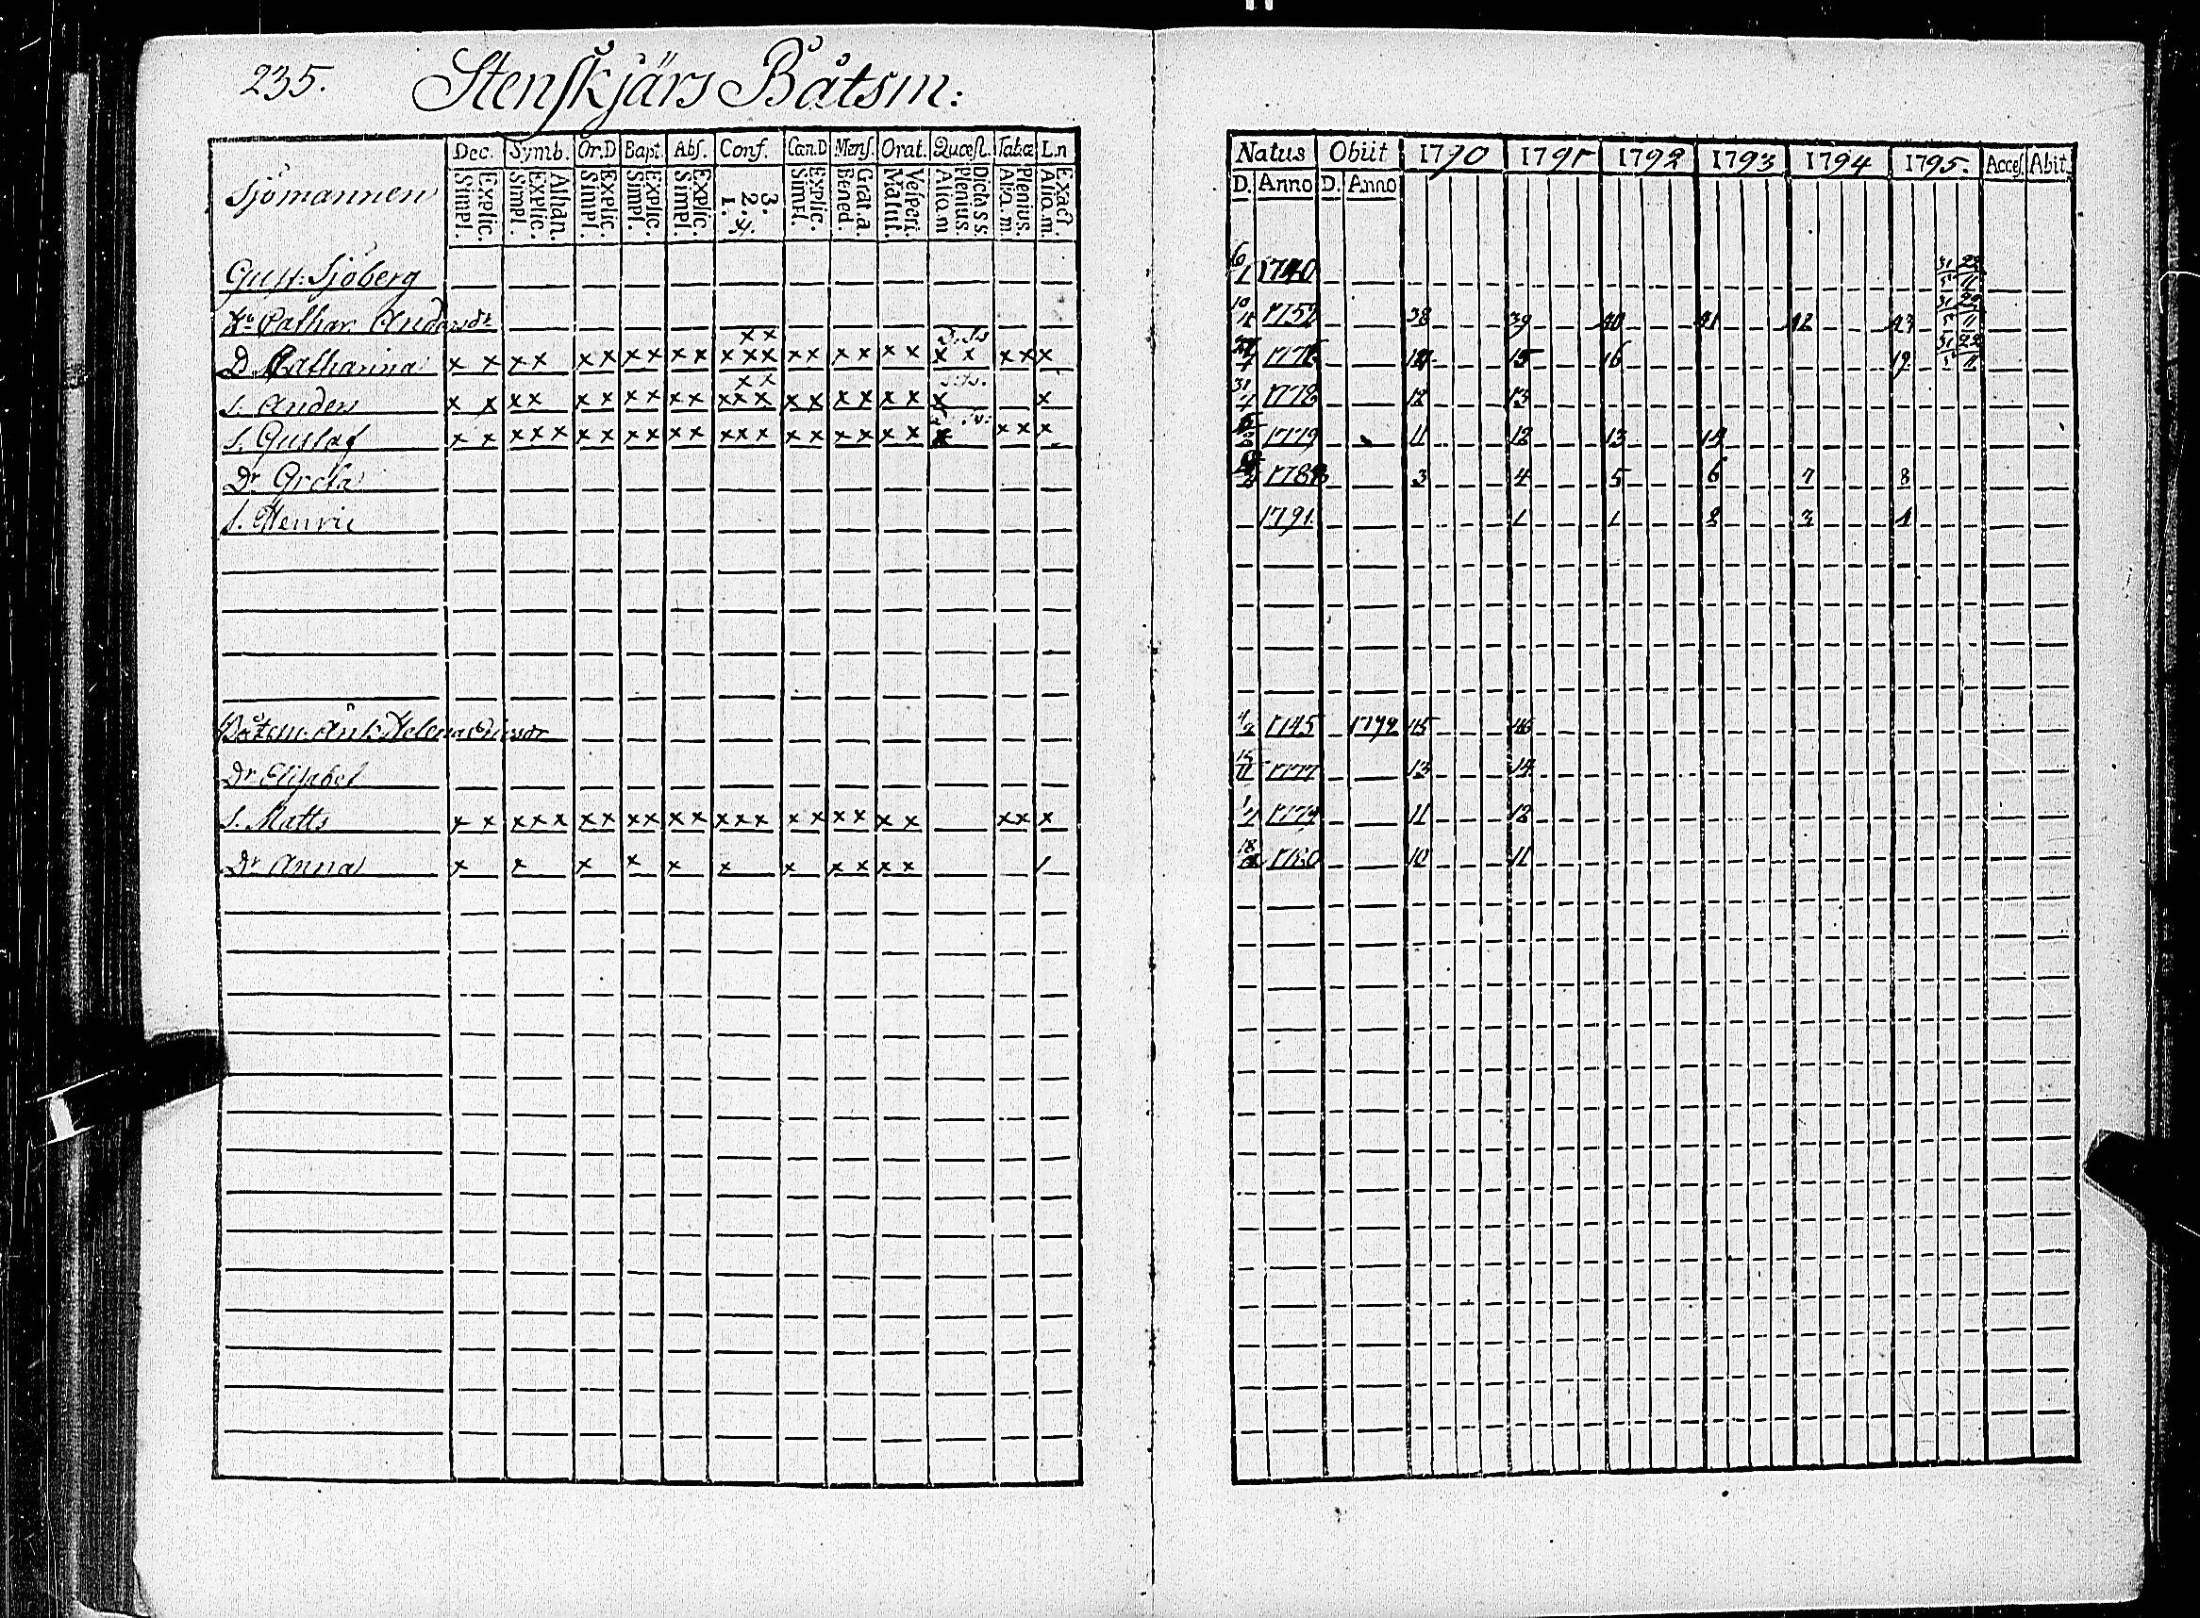 235. Stenskjärs Båtsm:
Dec. Symb. Or.D Bapt. Abs. Conf. Can.D Mens. Orat. Quæst. Tabæ L.n
Sjömannen
Simpl. Explic. Simpl. Explic. Athan. Simpl. Explic. Simpl. Explic. Simpl. Explic. 1. 2. 3. 4. Simpl. Explic. Bened. Grat. a. Matut. Vesperi. Alio.m Plenius. Dicta s s. Alio.m. Plenius. Alio.m. Exact.
Gust: Sjöberg
Hu Cathar. Andersdr
D Catharina x x x x x x x x x x x x x x x x x x x x x x x x x x x
S. Anders x x x x x x x x x x x x x x x x x x x x x x x
S. Gustaf x x x x x x x x x x x x x x x x x x x x x x x x
Dr Greta
S. Henric
Båtsm. Änk. Helena Ericsdr
Dr Elisabet
S. Matts x x x x x x x x x x x x x x x x x x x x x x x
Dr Anna x x x x x x x x x x x
Natus Obiit 1790 1791 1792 1793 1794 1795. Acces. Abit.
D. Anno D. Anno
1740 31/5 22/11
10 1752 38 39 40 41 42 43 31/5 22/11
15 16 19 31/5 22/11
31 1778 12 13
1779 11 12 13 14
3 4 5 6 7 8
1791 1 1 2 3 4
1745 1792 45 46
1777 13 14
1 1779 11 12
18 1780 10 11